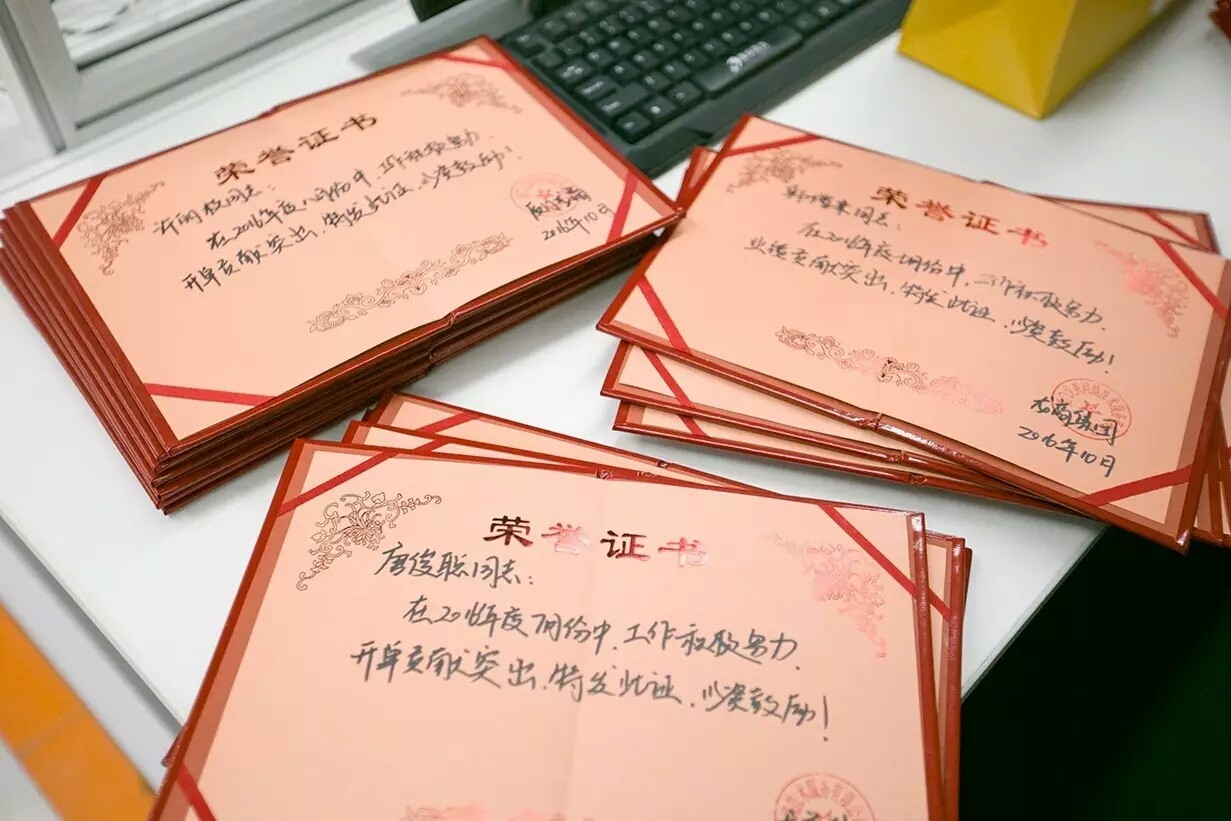 荣誉证书
同志:
在2016年度八月份中,工作积极努力.
开单贡献突出,特发此证,以资鼓励!
2016年10月
荣誉证书
同志:
在2016年度月份中,工作积极努力.
业绩贡献突出,特发此证,以资鼓励!
龙商集团
2016年10月
荣誉证书
唐俊聪同志:
在2016年度月份中,工作积极努力.
开单贡献突出,特发此证,以资鼓励!